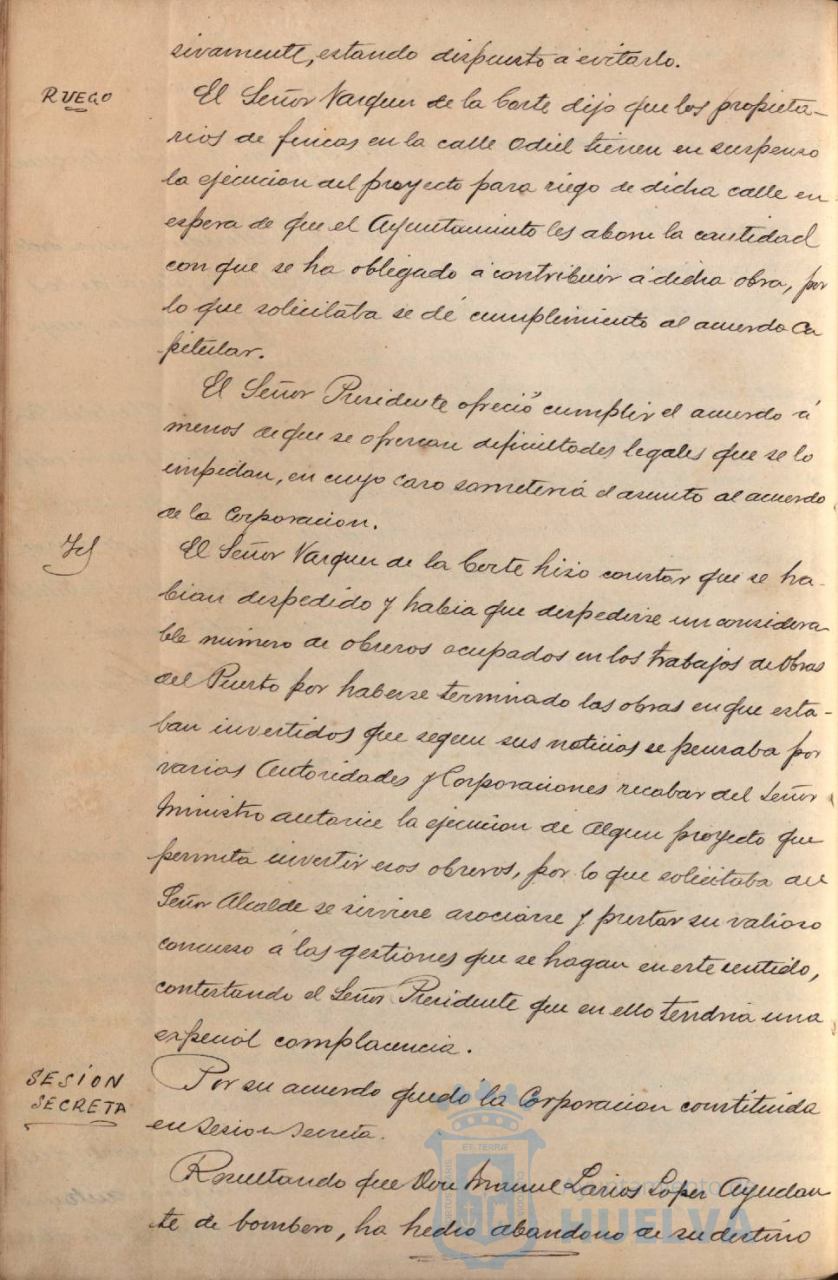 sivamente, estando dispuesto á evitarlo.
RUEGO
El Señor Vazquez de la Corte dijo que los propieta-
rios de fincas en la calle Odiel tienen en suspenso
la ejecucion del proyecto para riego de dicha calle en
espera de que el Ayuntamiento les abone la cantidad
con que se ha obligado á contribuir á dicha obra, por
lo que solicitaba se dé cumplimiento al acuerdo Ca
pitular.
El Señor Presidente ofreció cumplir el acuerdo á
menos de que se ofrezcan dificultades legales que se lo
impidan, en cuyo caso someteria el asunto al acuerdo
de la Corporacion.
Id
El Señor Vazquez de la Corte hizo constar que se ha-
bian despedido y habia que despedirse un considera
ble número de obreros ocupados en los trabajos de Obras
del Puerto por haberse terminado las obras en que esta-
ban invertidos que segun sus noticias se pensaba por
varias Autoridades y Corporaciones recabar del Señor
Ministro autorice la ejecucion de algun proyecto que
permita invertir esos obreros, por lo que solicitaba del
Señor Alcalde se sirviese asociarse y prestar su valioso
concurso á las gestiones que se hagan en este sentido,
contestando el Señor Presidente que en ello tendria una
especial complacencia.
SESION
SECRETA
Por su acuerdo quedo la Corporacion constituida
en sesion secreta.
Resultando que Don Manuel Larios Lopez Ayudan
te de bombero, ha hecho abandono de su destino
Ayuntamiento de
HUELVA